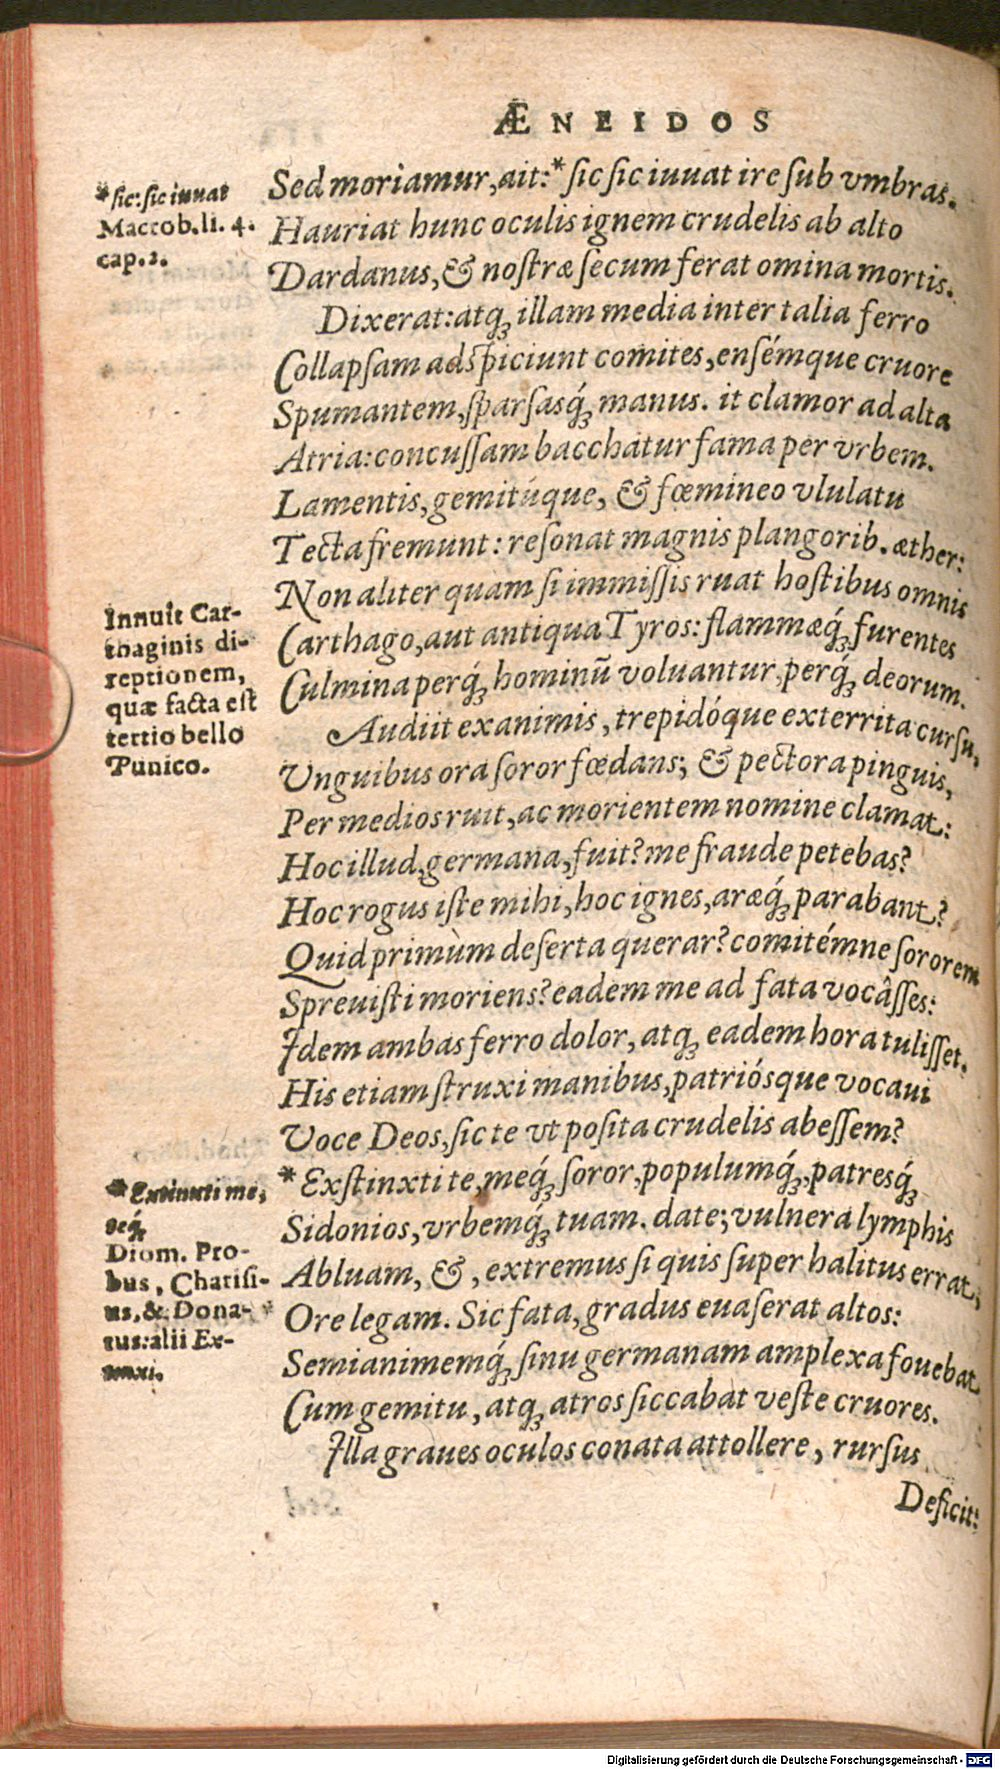 ÆNEIDOS
*sic: sic iuuat
Macrob. li. 4.
cap. 1.
Sed moriamur, ait: * sic sic iuuat ire sub vmbras.
Hauriat hunc oculis ignem crudelis ab alto
Dardanus, & nostræ secum ferat omina mortis.
Dixerat: atq; illam media inter talia ferro
Collapsam adspiciunt comites, ensémque cruore
Spumantem, sparsasq́; manus. it clamor ad alta
Atria: concussam bacchatur fama per vrbem.
Lamentis, gemitúque, & fœmineo vlulatu
Tecta fremunt: resonat magnis plangorib. æther:
Non aliter quam si immissis ruat hostibus omnis
Carthago, aut antiqua Tyros: flammæq́; furentes
Culmina perq́; hominū voluantur, perq́; deorum.
Innuit Car-
thaginis di-
reptionem,
quæ facta est
tertio bello
Punico.
Audiit exanimis, trepidóque exterrita cursu,
Vnguibus ora soror fœdans; & pectora pinguis,
Per medios ruit, ac morientem nomine clamat:
Hoc illud, germana, fuit? me fraude petebas?
Hoc rogus iste mihi, hoc ignes, aræq́; parabant?
Quid primùm deserta querar? comitémne sororem
Spreuisti moriens? eadem me ad fata vocâsses:
Idem ambas ferro dolor, atq; eadem hora tulisset.
His etiam struxi manibus, patriósque vocaui
Voce Deos, sic te vt posita crudelis abessem?
* Exstinxti te, meq́; soror, populumq́;, patresq́;
Sidonios, vrbemq́; tuam. date; vulnera lymphis
Abluam, &, extremus si quis super halitus errat,
Ore legam. Sic fata, gradus euaserat altos:
Semianimemq́; sinu germanam amplexa fouebat
Cum gemitu, atq; atros siccabat veste cruores.
Illa graues oculos conata attollere, rursus
*Extinxti me,
teq́;
Diom. Pro-
bus, Charisi-
us, & Dona-
tus: alii Ex-
Deficit:
Digitalisierung gefördert durch die Deutsche Forschungsgemeinschaft - DFG